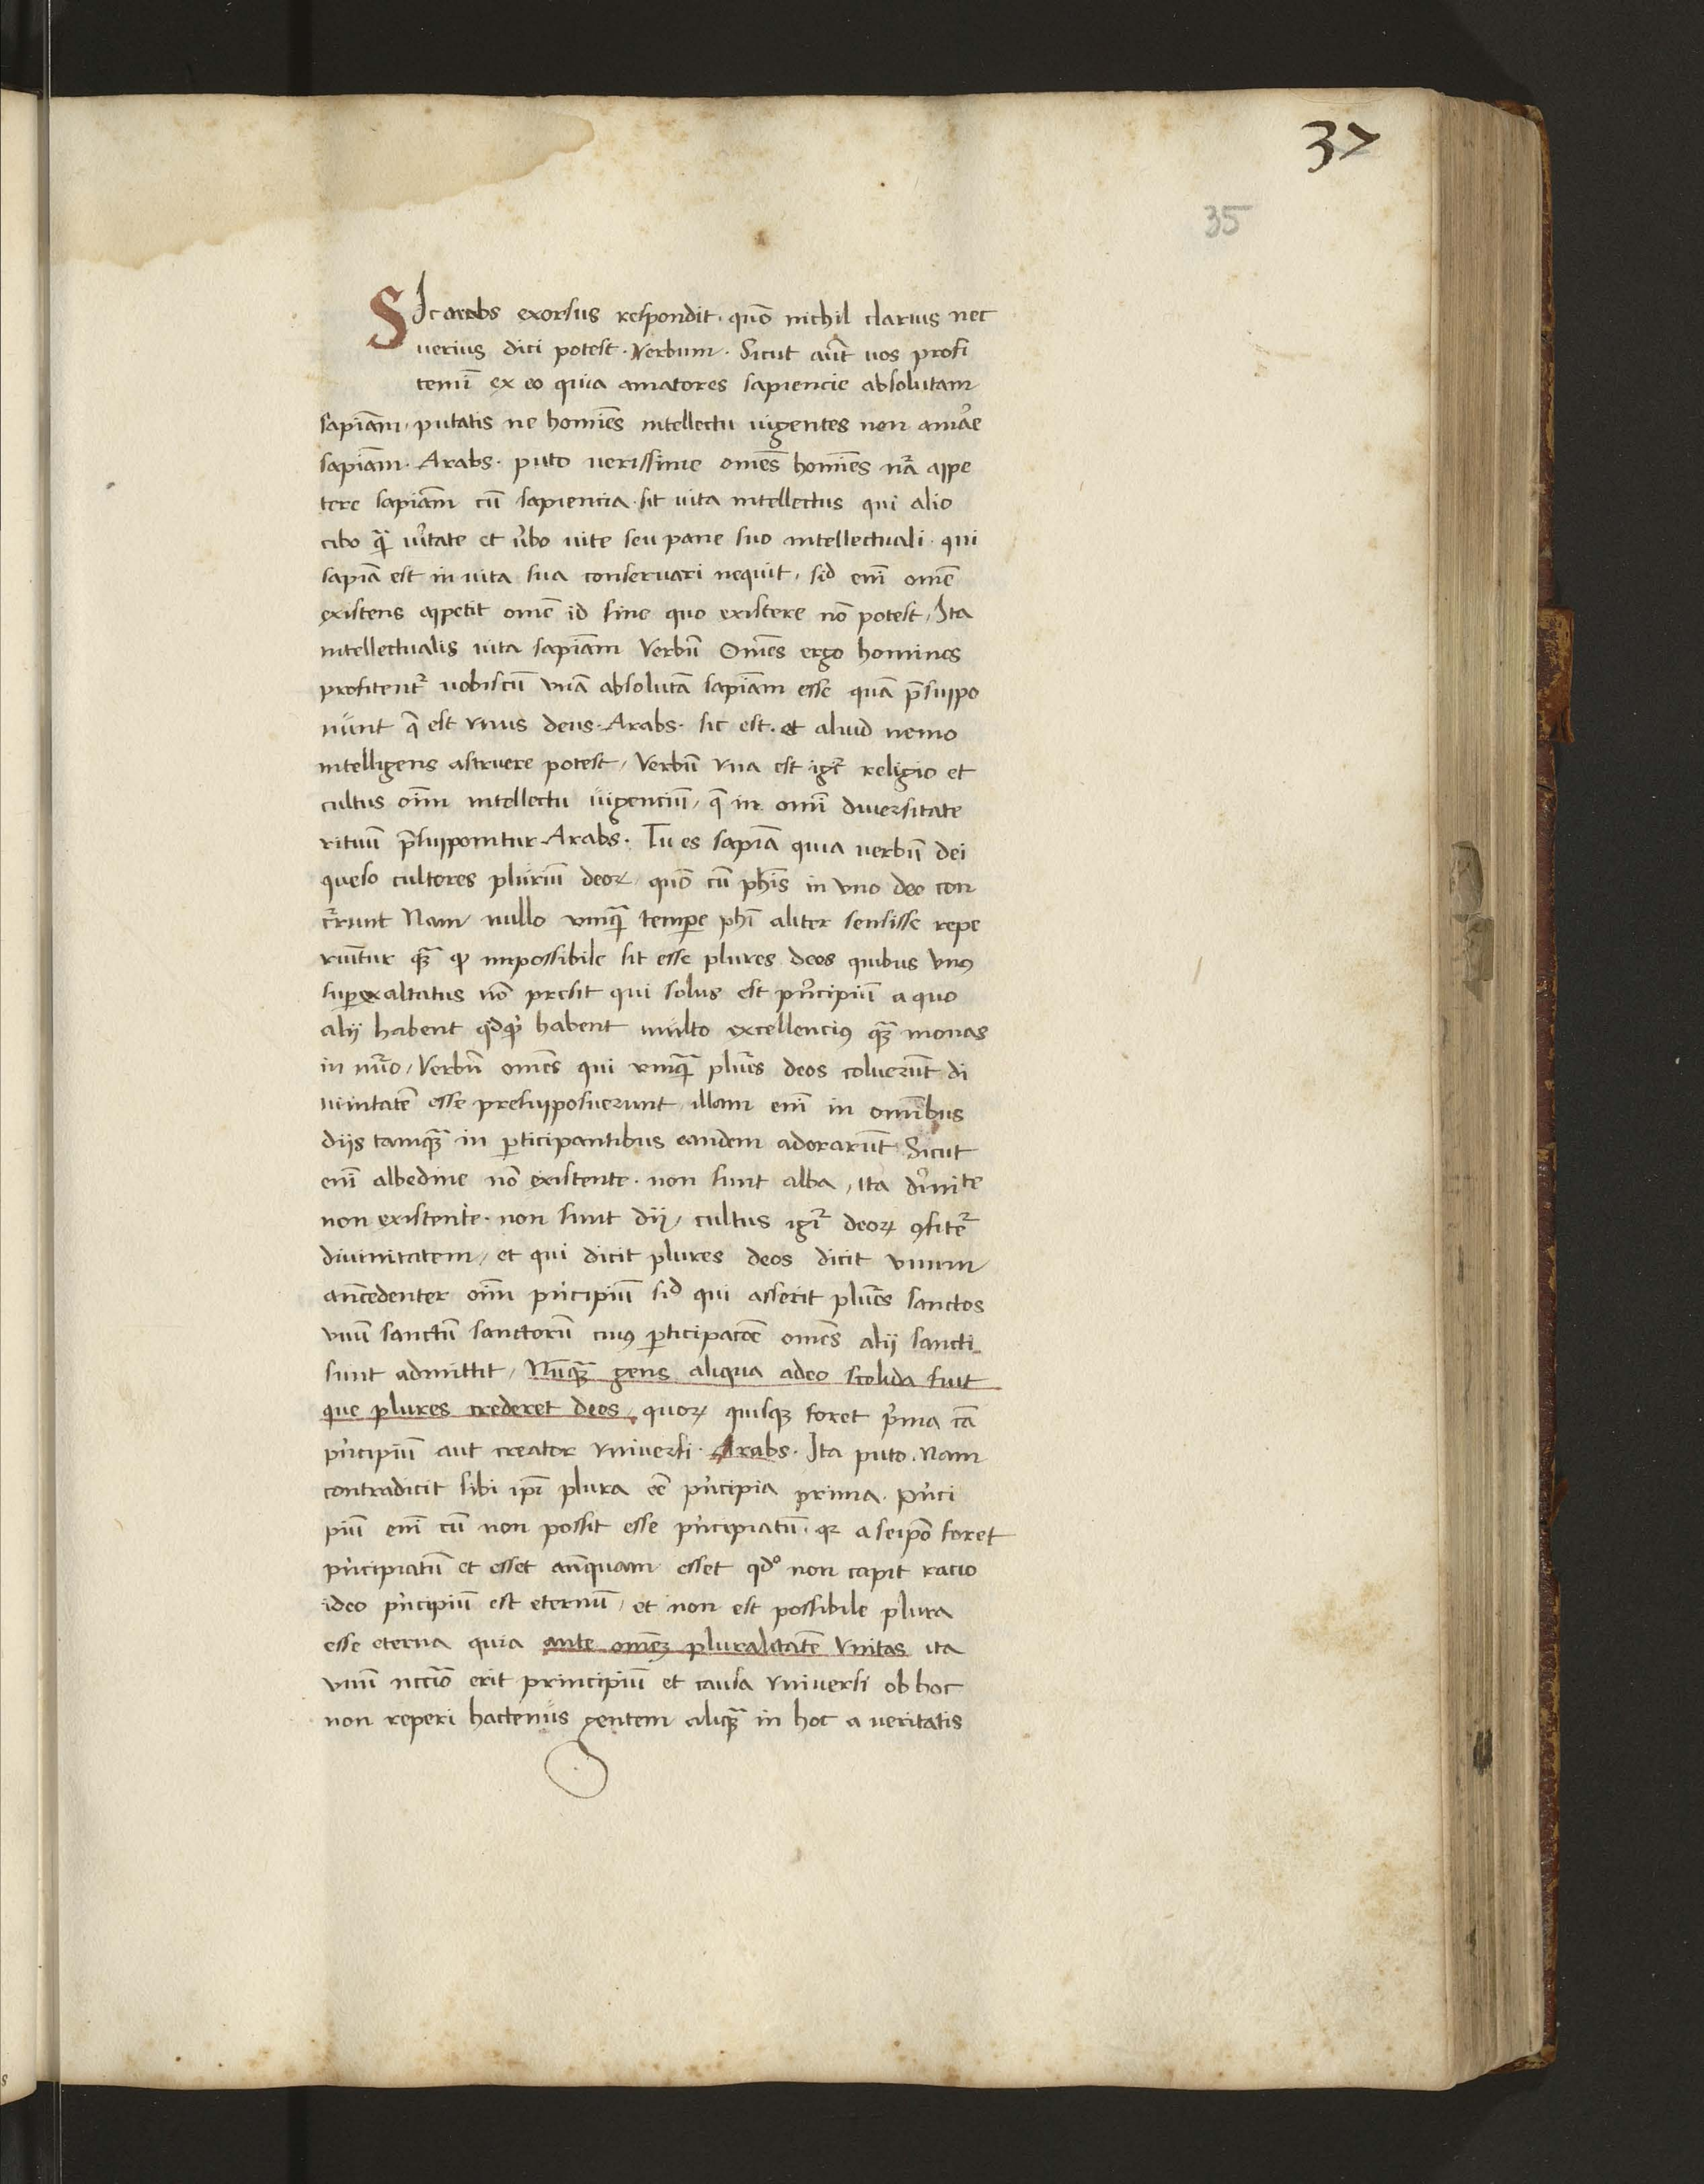 37
35
SIc arabs exorsus respondit. quō nichil clarius nec
uerius dici potest. Verbum. Sicut aūt uos profi
temī ex eo quia amatores sapiencie absolutam
sapiām, putatis ne homīes intellectu uigentes non amāe
sapiām. Arabs. puto uerissime omēs homīes nrā appe
tere sapiām cū sapiencia sit uita intellectus qui alio
cibo q̄ ūitate et ūbo uite seu pane suo intellectuali. qui
sapiā est in uita sua conseruari nequit, sid enī omē
existens appetit omē id sine quo existere nō potest, Ita
intellectualis uita sapiām Verbū Omēs ergo homines
profitent̄ uobiscū vnā absolutā sapiām esse quā p̄suppo
nunt q̄ est vnus deus. Arabs. sic est. et aliud nemo
intelligens astruere potest, Verbū vna est igr̄ religio et
cultus oīm intellectu uigenciū, q̄ in omī diuersitate
rituū p̄supponitur. Arabs. Tu es sapiā quia uerbū dei
queso cultores pluriū deoꝝ quō cū phīs in vno deo con
c̄runt Nam nullo vmq̄ tempe phī aliter sensisse repe
riūtur qꝫ ꝙ impossibile sit esse plures deos quibus vnꝰ
superexaltatus nō presit qui solus est p̄ncipiū a quo
alij habent qdq̄d habent multo excellenciꝰ qꝫ monas
in nūo, Verbū omēs qui vmq̄ plūes deos coluerūt di
uinitatē esse presupposuerunt illam enī in omībus
diis tamqꝫ in ꝑticipantibus eandem adorarūt Sicut
enī albedine nō existente. non sunt alba, ita diūite
non existente. non sunt dii, cultus igr̄ deoꝝ ꝯfitet̄
diuinitatem, et qui dicit plures deos dicit vnum
antēcedenter oīm p̄ncipiū sid qui asserit plūes sanctos
vnū sanctū sanctorū cuiꝰ ꝑticipacōe omēs alij sancti
sunt admittit, Nūqꝫ gens aliqua adeo stolida fuit
que plures crederet deos, quoꝝ quisqꝫ foret p̄ma cā
p̄ncipiū aut creator vniuersi. Arabs. Ita puto. Nam
contradicit sibi ipī plura eē p̄ncipia prima. P̄nci
piū enī cū non possit esse p̄ncipiatū. qꝛ a seipō foret
p̄ncipiatū et esset an̄quam esset qd° non capit racio
ideo p̄ncipiū est eternū, et non est possibile plura
esse eterna quia ante omēꝫ pluralitatē vnitas ita
vnū nccīo erit principiū et causa vniuersi ob hoc
non reperi hactenus gentem aliqꝫ in hoc a ueritatis